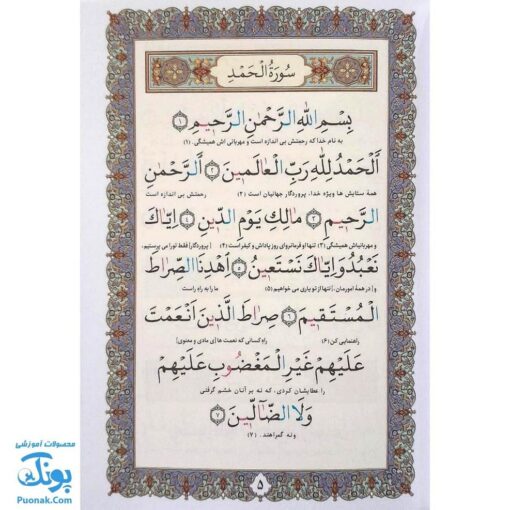 سُورَةُ الْحَمْدِ
بِسْمِ اللهِ الرَّحْمٰنِ الرَّحيمِ ﴿١﴾
به نام خدا که رحمتش بی اندازه است و مهربانی اش همیشگی. (۱)
اَلْحَمْدُ لِلّٰهِ رَبِّ الْعالَمينَ ﴿٢﴾ اَلرَّحْمٰنِ
همهٔ ستایش ها ویژه خدا، پروردگار جهانیان است (۲) رحمتش بی اندازه است
الرَّحيمِ ﴿٣﴾ مالِكِ يَوْمِ الدّينِ ﴿٤﴾ اِيّاكَ
و مهربانی‌اش همیشگی (۳) تنها او فرمانروای روز پاداش و کیفر است (۴) [پروردگار!] فقط تو را می پرستیم،
نَعْبُدُ وَ اِيّاكَ نَسْتَعينُ ﴿٥﴾ اِهْدِنَا الصِّراطَ
و [در همهٔ امورمان،] تنها از تو یاری می خواهیم (۵) ما را به راهِ راست
الْمُسْتَقيمَ ﴿٦﴾ صِراطَ الَّذينَ اَنْعَمْتَ
راهنمایی کن (۶) راهِ کسانی که نعمت ها [ی مادی و معنوی]
عَلَيْهِمْ غَيْرِ الْمَغْضُوبِ عَلَيْهِمْ
را عطایشان کردی، که نه بر آنان خشم گرفتی
وَلَا الضّالّينَ ﴿٧﴾
و نه گمراهند. (۷)
۵
محصولات آموزشی
پونک
Puonak.Com